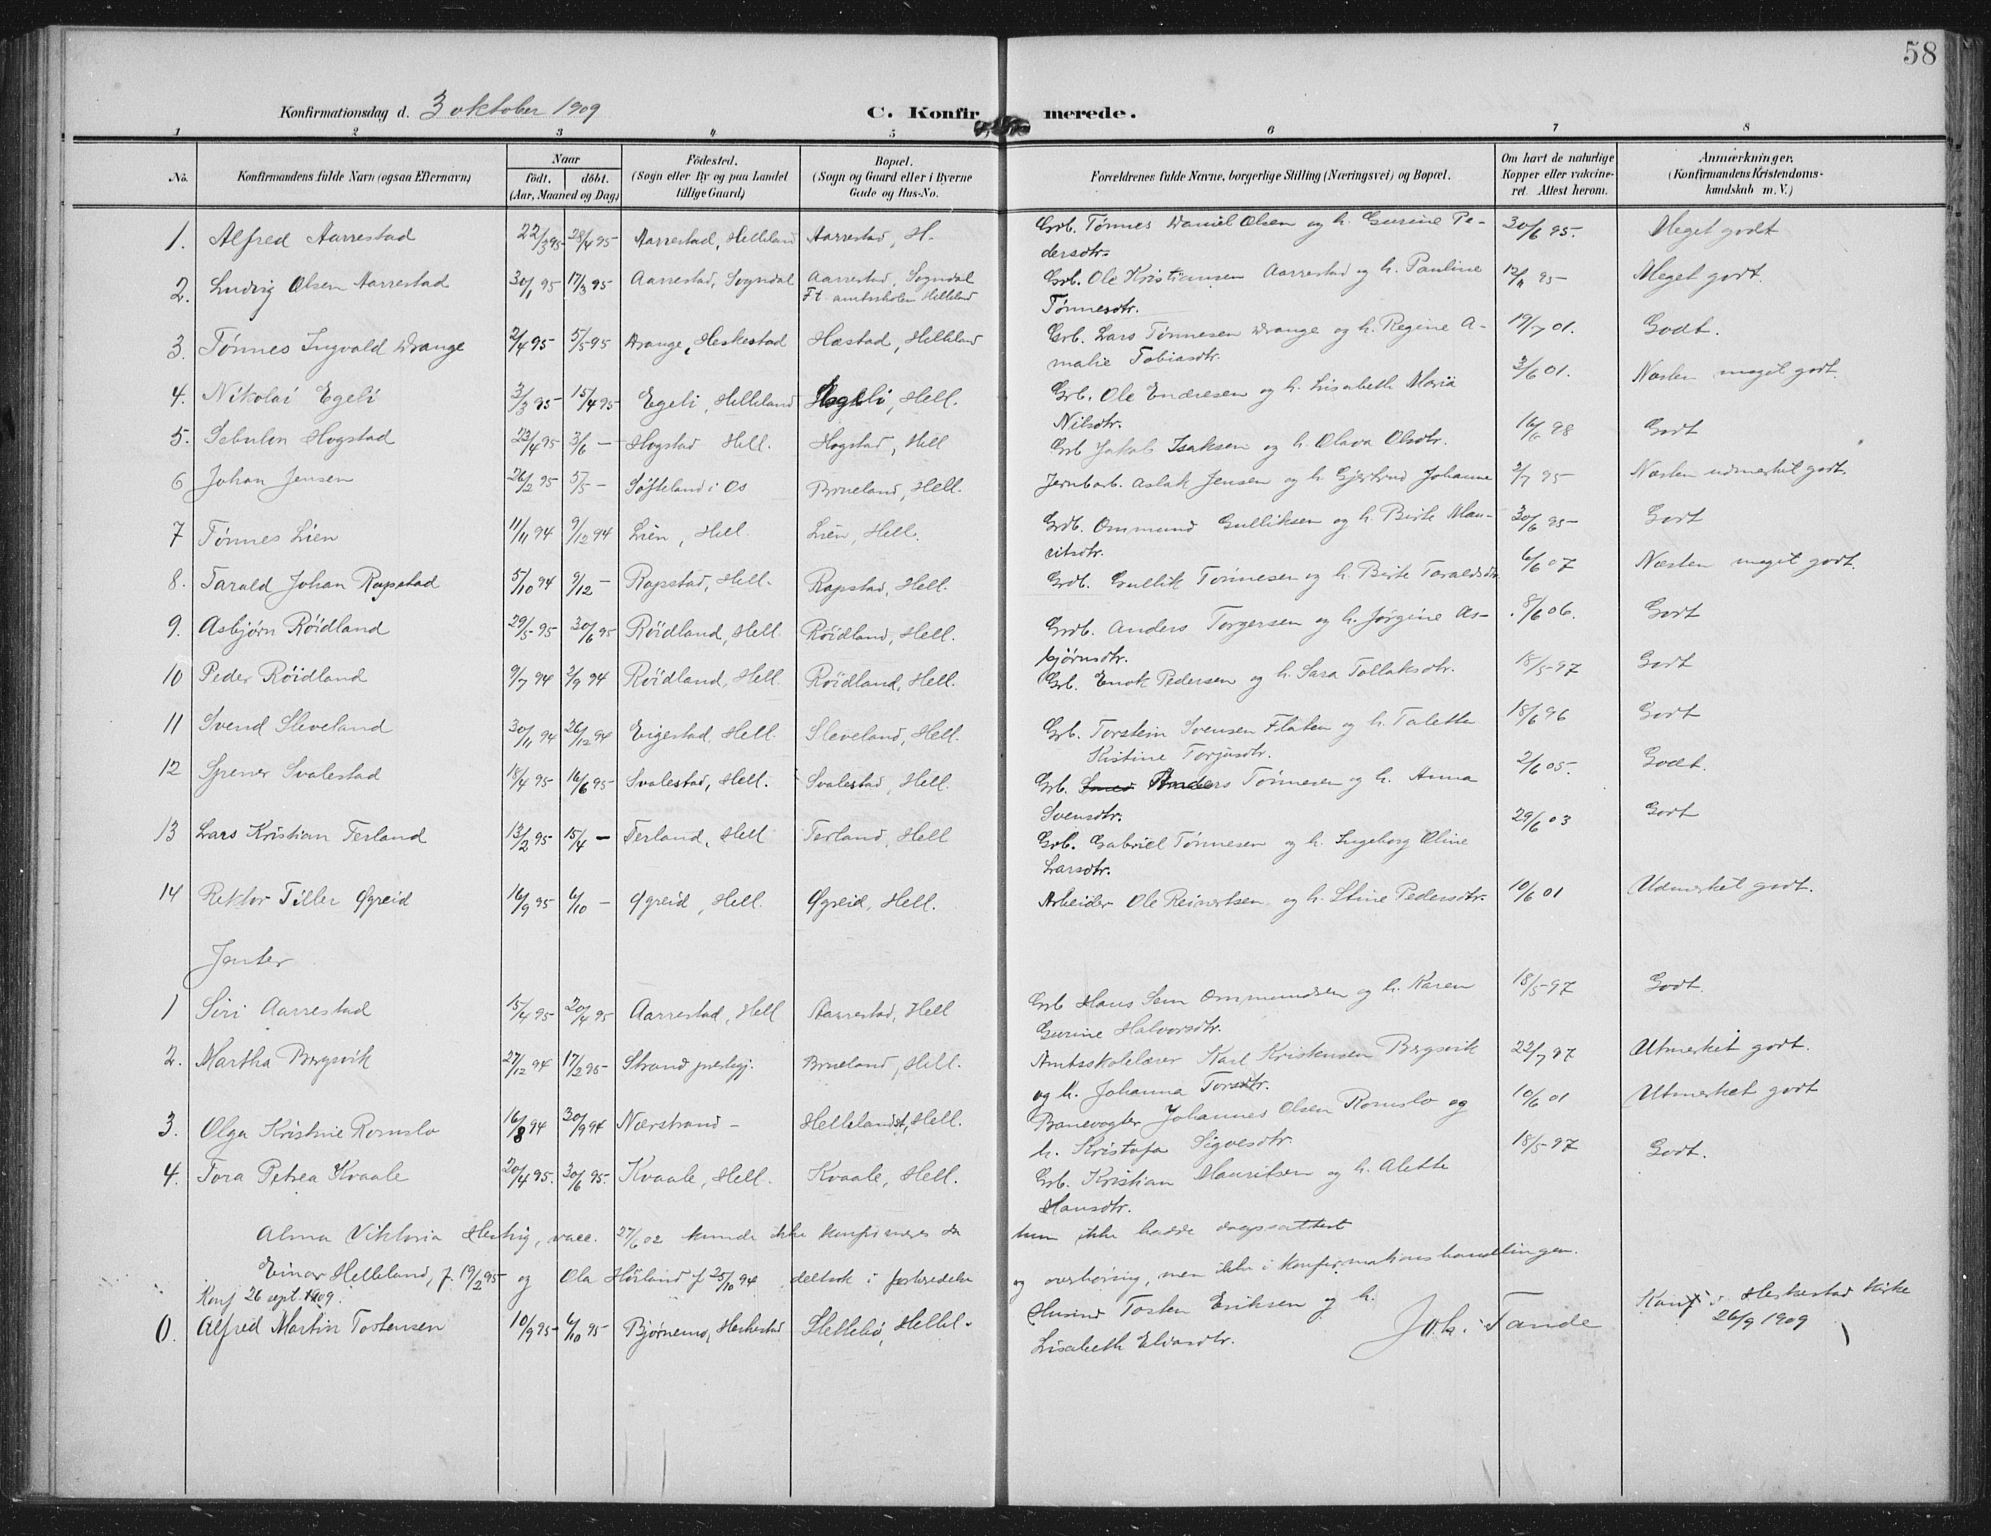 58
Konfirmationsdag d. 3 oktober 1909 C. Konfirmerede.
1 2 3 4 5 6 7 8
No. Konfirmandens fulde Navn (ogsaa Efternavn) Naar født. døbt. (Aar, Maaned og Dag) Födested. (Sogn eller By og paa Landet tillige Gaard) Bopæl. (Sogn og Gaard eller i Byerne Gade og Hus-No. Forældrenes fulde Navne, borgerlige Stilling (Næringsvei) og Bopæl. Om havt de naturlige Kopper eller vakcineret. Attest herom. Anmærkninger. (Konfirmandens Kristendomskundskab m. V.)
1. Alfred Aarrestad 22/3 95 28/4 95 Aarrestad, Helleland Aarrestad, H. Grb. Tønnes Daniel Olsen og h. Gurine Pe- 30/6 95. Meget godt
dersdtr.
2. Ludvig Olsen Aarrestad 30/1 95 17/3 95 Aarrestad, Sogndal Aarrestad, Sogndal Grb. Ole Kristiansen Aarrestad og h. Pauline 95 Meget godt.
Ft. amtsskolen Helleland Tønnesdtr.
3. Tønnes Ingvald Drange 2/4 95 5/5 95 Drange, Heskestad Hæstad, Helleland Grb. Lars Tønnesen Drange og h. Regine A- 19/7 01. Godt.
malie Tobiasdtr.
4. Nikolai Egeli 3/3 95 15/4 95 Egeli, Helleland Egeli, Hell. Grb. Ole Endresen og h. Lisabeth Maria 3/6 01. Næsten meget godt.
Nilsdtr.
5. Sebulon Hogstad 23/4 95 3/6 — Hogstad Hell. Hogstad, Hell Grb Jakob Isaksen og h. Olava Olsdtr. 16/6 98 Godt
6 Johan Jensen 26/2 95 5/5 — Søfteland i Os Brueland, Hell. Jernbarb. Aslak Jensen og h. Gjertrud Johanne 2/7 95 Næsten udmerket godt.
7 Tønnes Lien 11/11 94 9/12 94 Lien, Hell. Lien, Hell. Grb. Ommund Gulliksen og h. Birte Mau- 30/6 95 Godt
ritsdtr.
8. Tarald Johan Rapstad 5/10 94 9/12 — Rapstad, Hell. Rapstad, Hell. Grb. Gullik Tønnesen og h. Birte Taraldsdtr. 6/6 07 Næsten meget godt.
9. Asbjørn Röidland 29/5 95 30/6 95 Röidland, Hell. Röidland, Hell. Grb. Anders Torgersen og h. Jørgine As- 8/6 06. Godt
bjørnsdtr.
10 Peder Röidland 9/7 94 2/9 94 Röidland, Hell. Röidland, Hell. Grb. Enok Pedersen og h. Sara Tollaksdtr. 18/5 97 Godt
11 Svend Sleveland 30/11 94 26/12 94 Eigestad, Hell. Sleveland, Hell. Grb. Torstein Svensen Flaten og h. Taletta 18/6 96 Godt
Kistine Torjusdtr.
12 Spener Svalestad 18/4 95 16/6 95 Svalestad, Hell. Svalestad, Hell. Grb. Anders Tønnesen og h. Anna 2/6 05. Godt.
Svensdtr.
13 Lars Kristian Terland 13/2 95 15/4 — Terland, Hell Terland, Hell Grb. Gabriel Tønnesen og h. Ingeborg Oline 29/6 03 Godt
Larsdtr.
14 Rektor Tiller Øgreid 16/9 95 6/10 — Øgreid, Hell. Øgreid, Hell. Arbeider Ole Reinertsen og h. Stine Pedersdtr. 10/6 01 Udmerket godt.
Jenter
1 Siri Aarrestad 15/4 95 20/4 95 Aarrestad, Hell Aarrestad, Hell Grb Hans Sem Ommundsen og h. Karen 18/5 97 Godt.
Gurine Halvorsdtr.
2. Martha Bergsvik 27/12 94 17/2 95 Strand prestegj. Brueland, Hell. Amtsskolelærer Karl Kristensen Bergsvik 22/7 97 Utmerket godt.
og h. Johanna Torsdtr.
3. Olga Kristine Romslo 16/8 94 30/9 94 Nærstrand — Hellelandst, Hell. Banevogter Johannes Olsen Romslo og 10/6 01 Utmerket godt
h. Kristofa Sigvesdtr.
4. Tora Petrea Kvaale 20/4 95. 30/6 95. Kvaale, Hell. Kvaale, Hell. Grb. Kristian Mauritsen og h. Alette 18/5 97 Godt.
Hansdtr.
Alma Viktoria vacc. 27/6 02 kunde ikke konfirmeres da hun ikke hadde daapsattest
Einar Helleland, f. 19/2 95 og Ola Höiland f 25/10 94 deltok i forberedelse og overhöring, men ikke i konfirmationshandlingen.
Konf 26 sept. 1909.
0. Alfred Martin Tostensen 10/9 95 6/10 95 Bjørnemo, Heskestad Slettebø, Hellel. Husmd Tosten Eriksen og h. Joh. Tande Konf i Heskestad kirke
Lisabeth Eliasdtr. 26/9 1909